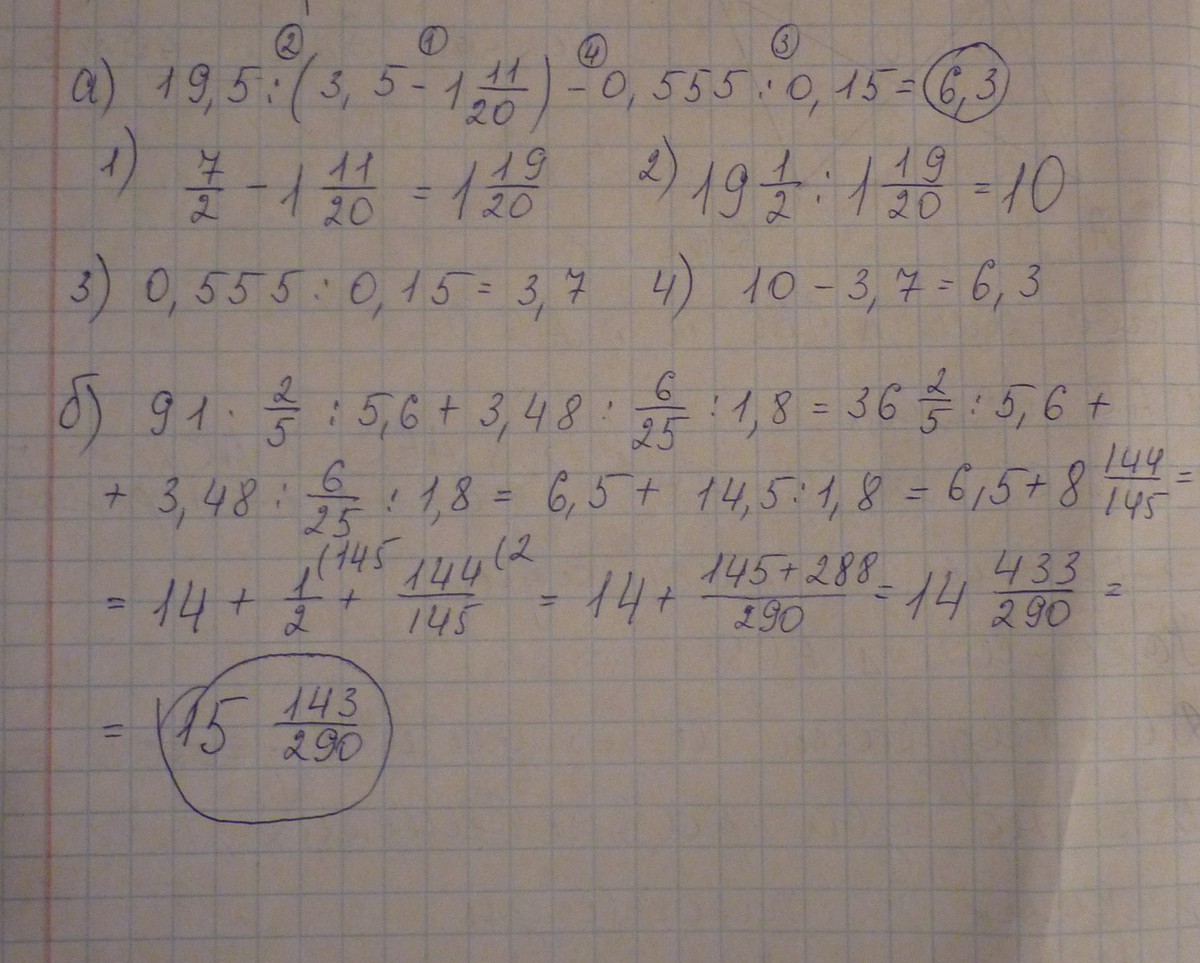 ② ① ④ ③
а) 19,5 : (3,5 - 1 11/20) - 0,555 : 0,15 = 6,3
1) 7/2 - 1 11/20 = 1 19/20 2) 19 1/2 : 1 19/20 = 10
3) 0,555 : 0,15 = 3,7 4) 10 - 3,7 = 6,3
б) 91 · 2/5 : 5,6 + 3,48 : 6/25 : 1,8 = 36 2/5 : 5,6 +
+ 3,48 : 6/25 : 1,8 = 6,5 + 14,5 : 1,8 = 6,5 + 8 144/145 =
= 14 + 1/2 (145 + 144/145 (2 = 14 + 145+288/290 = 14 433/290 =
= 15 143/290